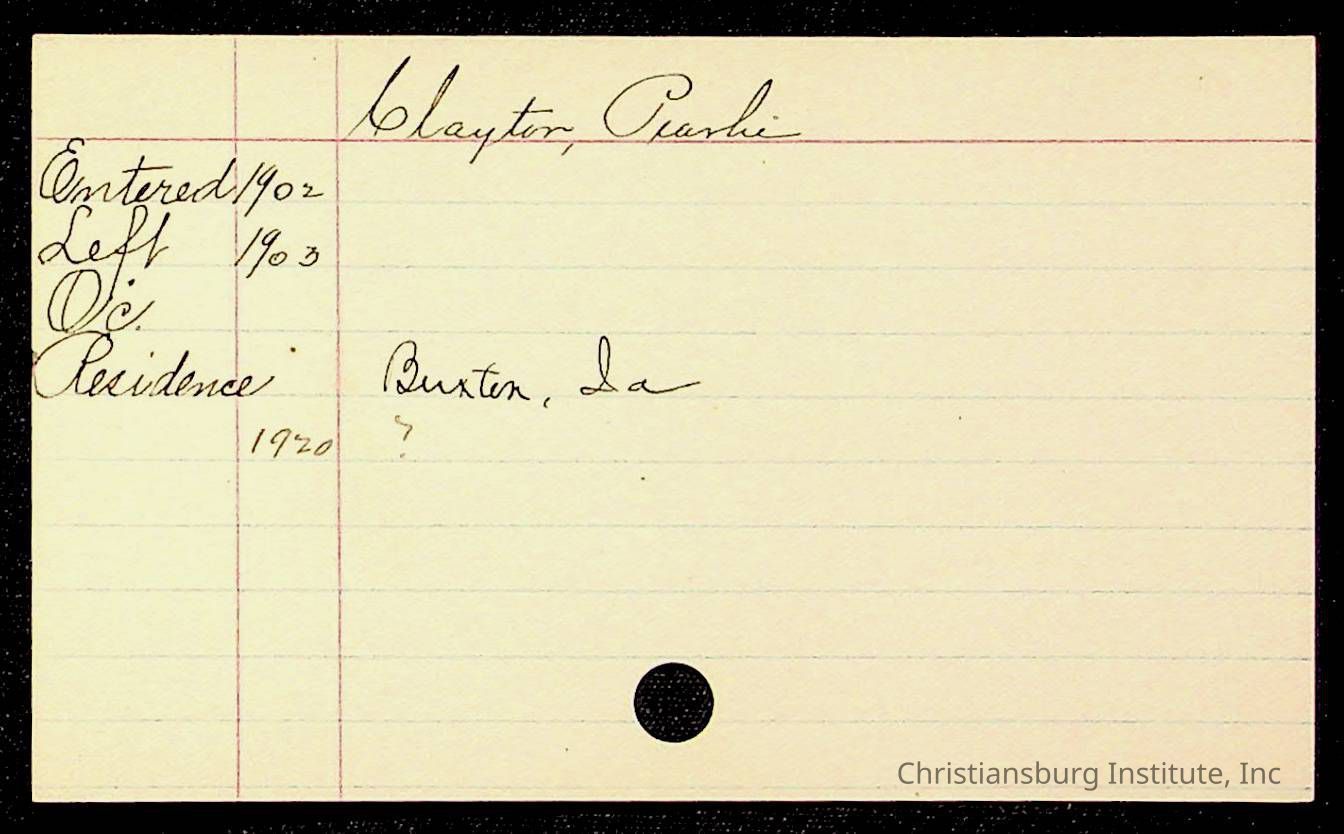 Clayton, Pearlie
Entered 1902
Left 1903
Oc.
Residence Buxton, Ia
1920 ?
Christiansburg Institute, Inc